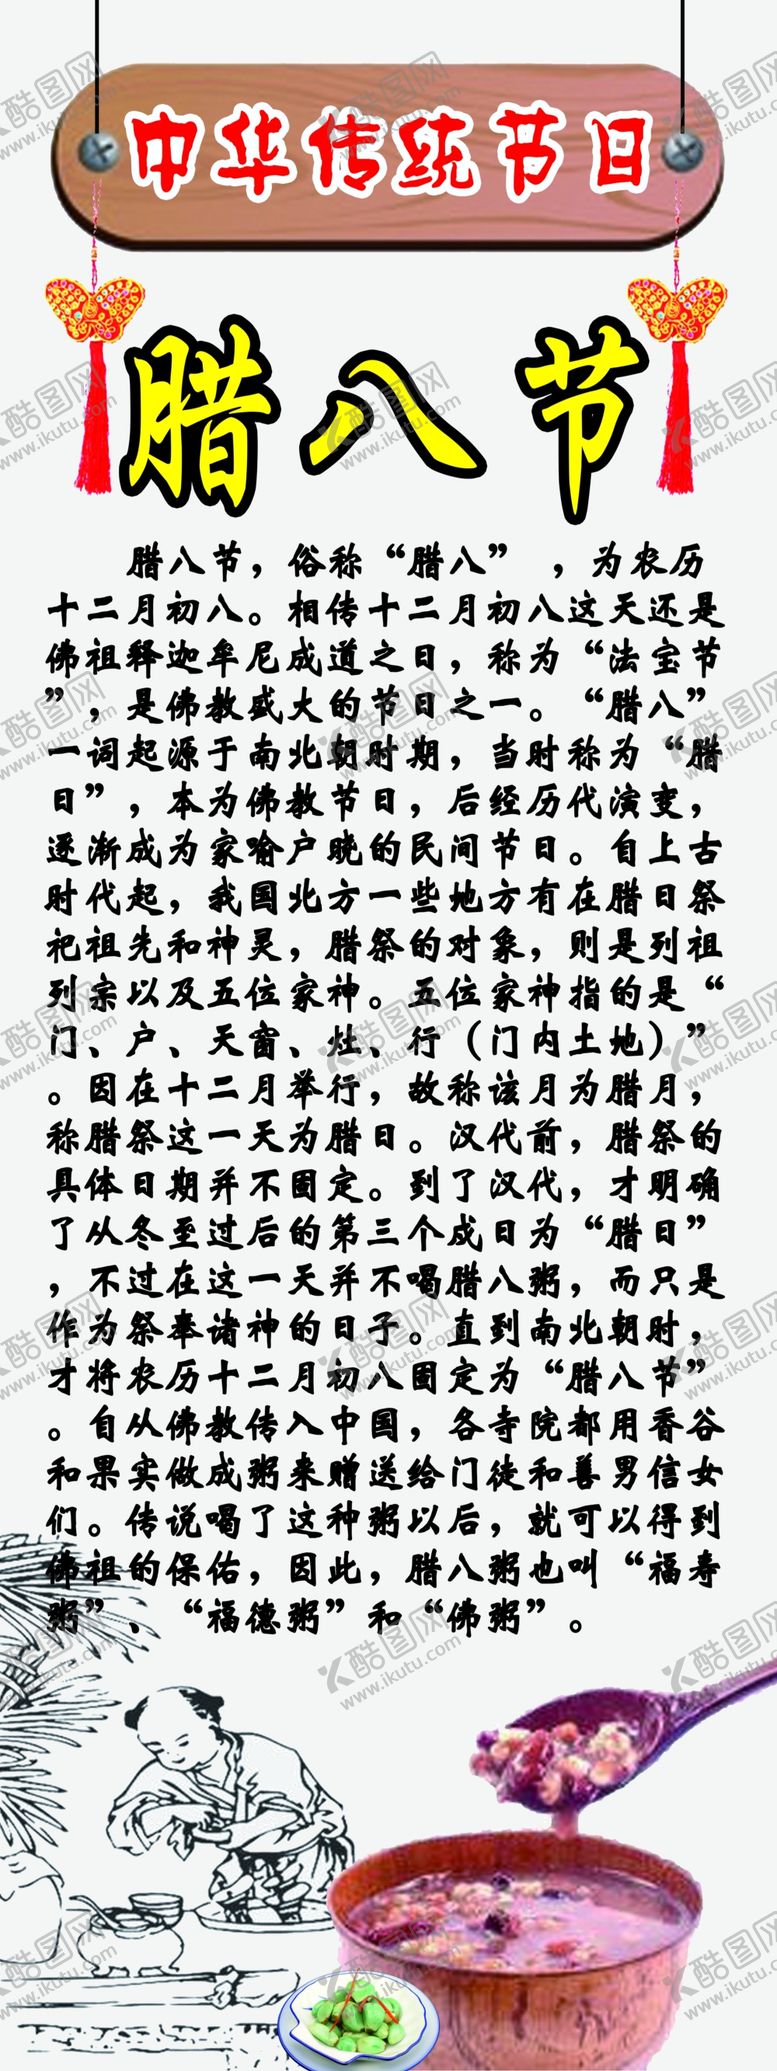 中华传统节日
腊八节
腊八节，俗称“腊八” ，为农历
十二月初八。相传十二月初八这天还是
佛祖释迦牟尼成道之日，称为“法宝节
”，是佛教盛大的节日之一。“腊八”
一词起源于南北朝时期，当时称为“腊
日”，本为佛教节日，后经历代演变，
逐渐成为家喻户晓的民间节日。自上古
时代起，我国北方一些地方有在腊日祭
祀祖先和神灵，腊祭的对象，则是列祖
列宗以及五位家神。五位家神指的是“
门、户、天窗、灶、行（门内土地）”
。因在十二月举行，故称该月为腊月，
称腊祭这一天为腊日。汉代前，腊祭的
具体日期并不固定。到了汉代，才明确
了从冬至过后的第三个成日为“腊日”
，不过在这一天并不喝腊八粥，而只是
作为祭奉诸神的日子。直到南北朝时，
才将农历十二月初八固定为“腊八节”
。自从佛教传入中国，各寺院都用香谷
和果实做成粥来赠送给门徒和善男信女
们。传说喝了这种粥以后，就可以得到
佛祖的保佑，因此，腊八粥也叫“福寿
粥”、“福德粥”和“佛粥”。
酷图网
www.ikutu.com